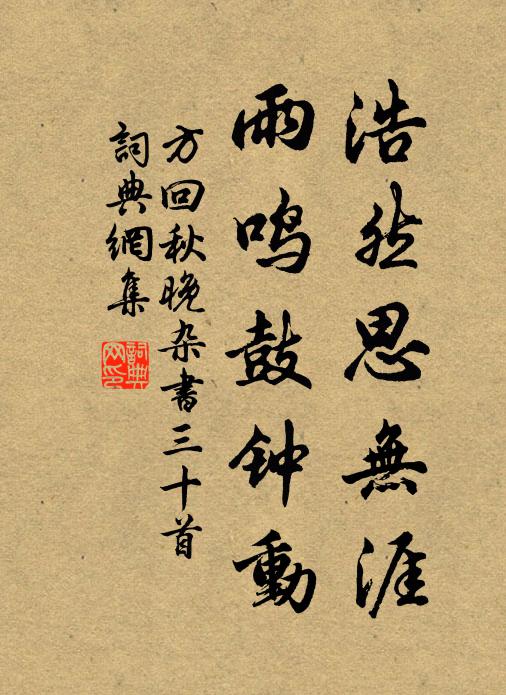 浩然思無涯
雨鸣鼓钟動
方回秋晚杂書三十首
詞典網集
詞典網印